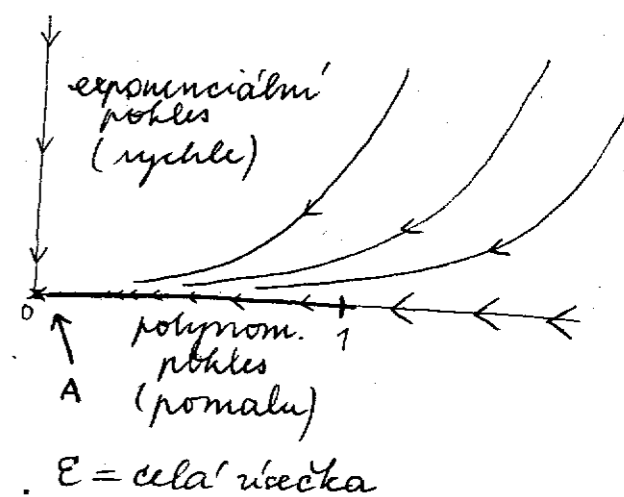 exponenciální
pokles
(rychle)
0
1
polynom.
pokles
(pomalu)
A
. E = celá úsečka